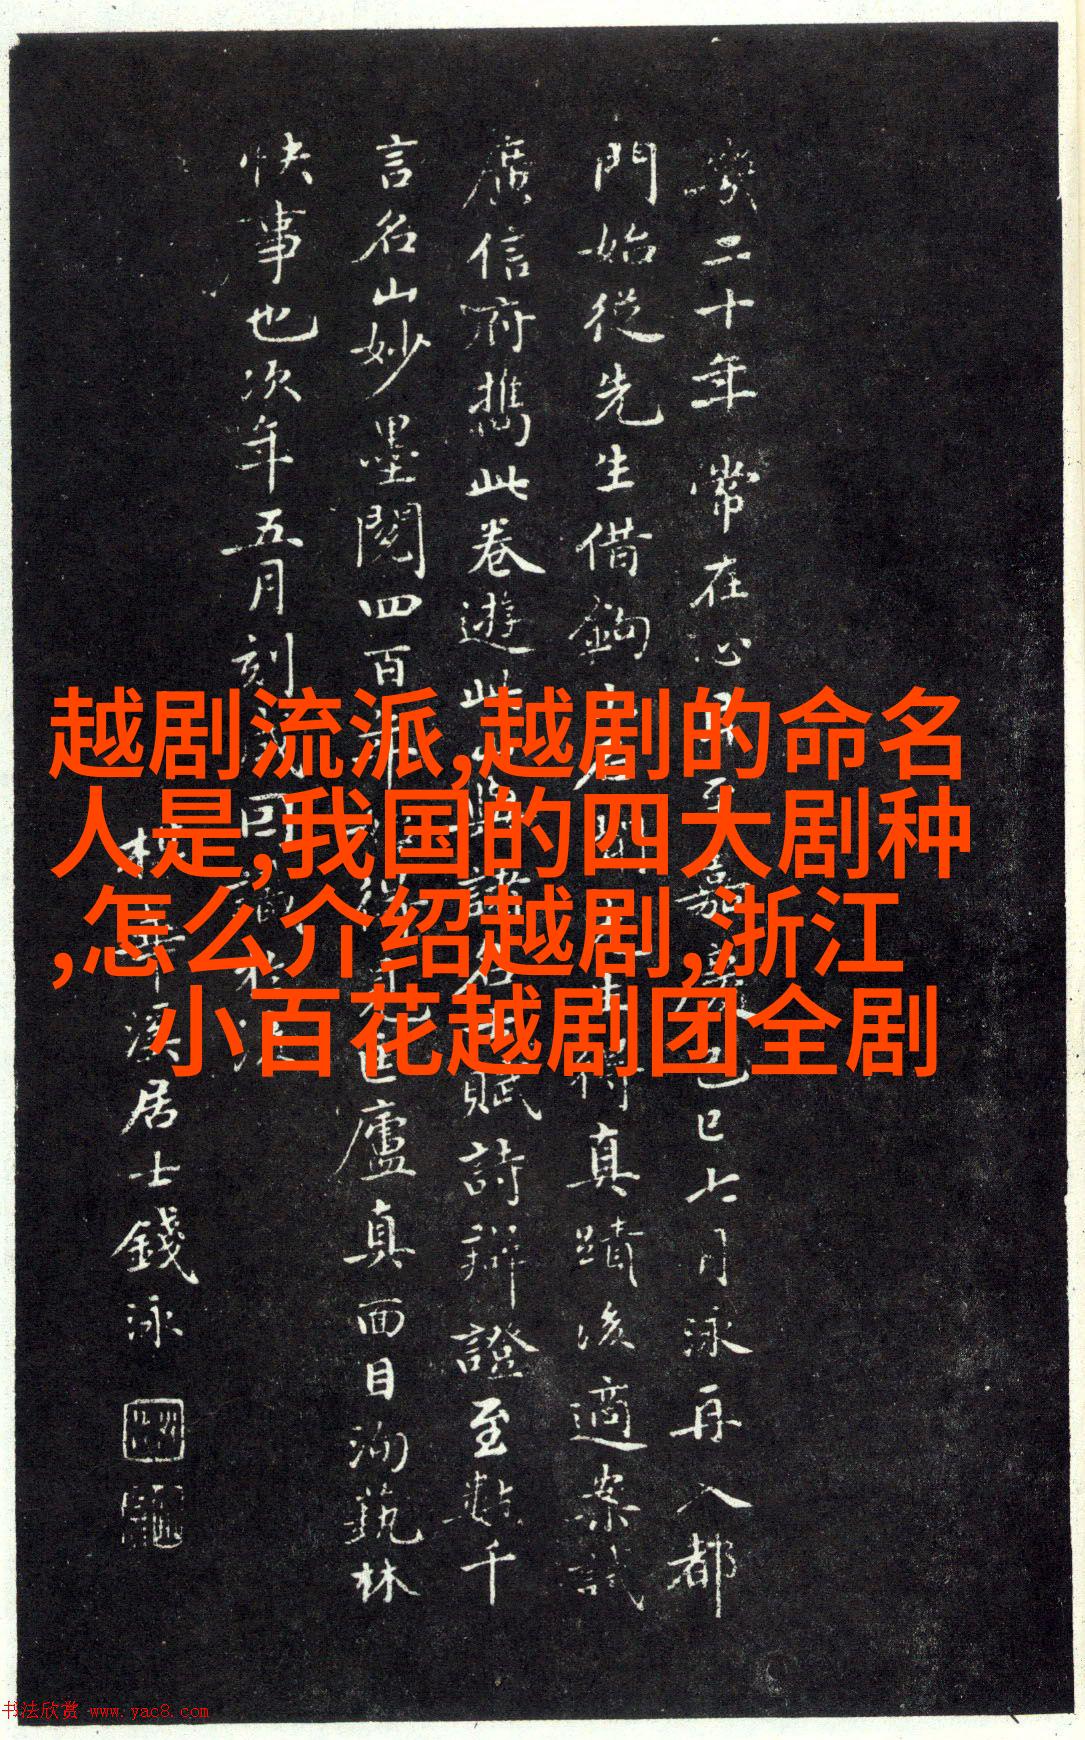 二十年常在心目至嘉慶己巳七月泳再入都
門始從先生借鉤真蹟後適案試
廣信府攜此卷遊此賦詩辯證至數千
言名山妙墨閱四百匡廬真面目洵藝林
快事也次年五月刻
梅華溪居士錢泳
越剧流派,越剧的命名
人是,我国的四大剧种
,怎么介绍越剧,浙江
小百花越剧团全剧
书法欣赏 www.yac8.com